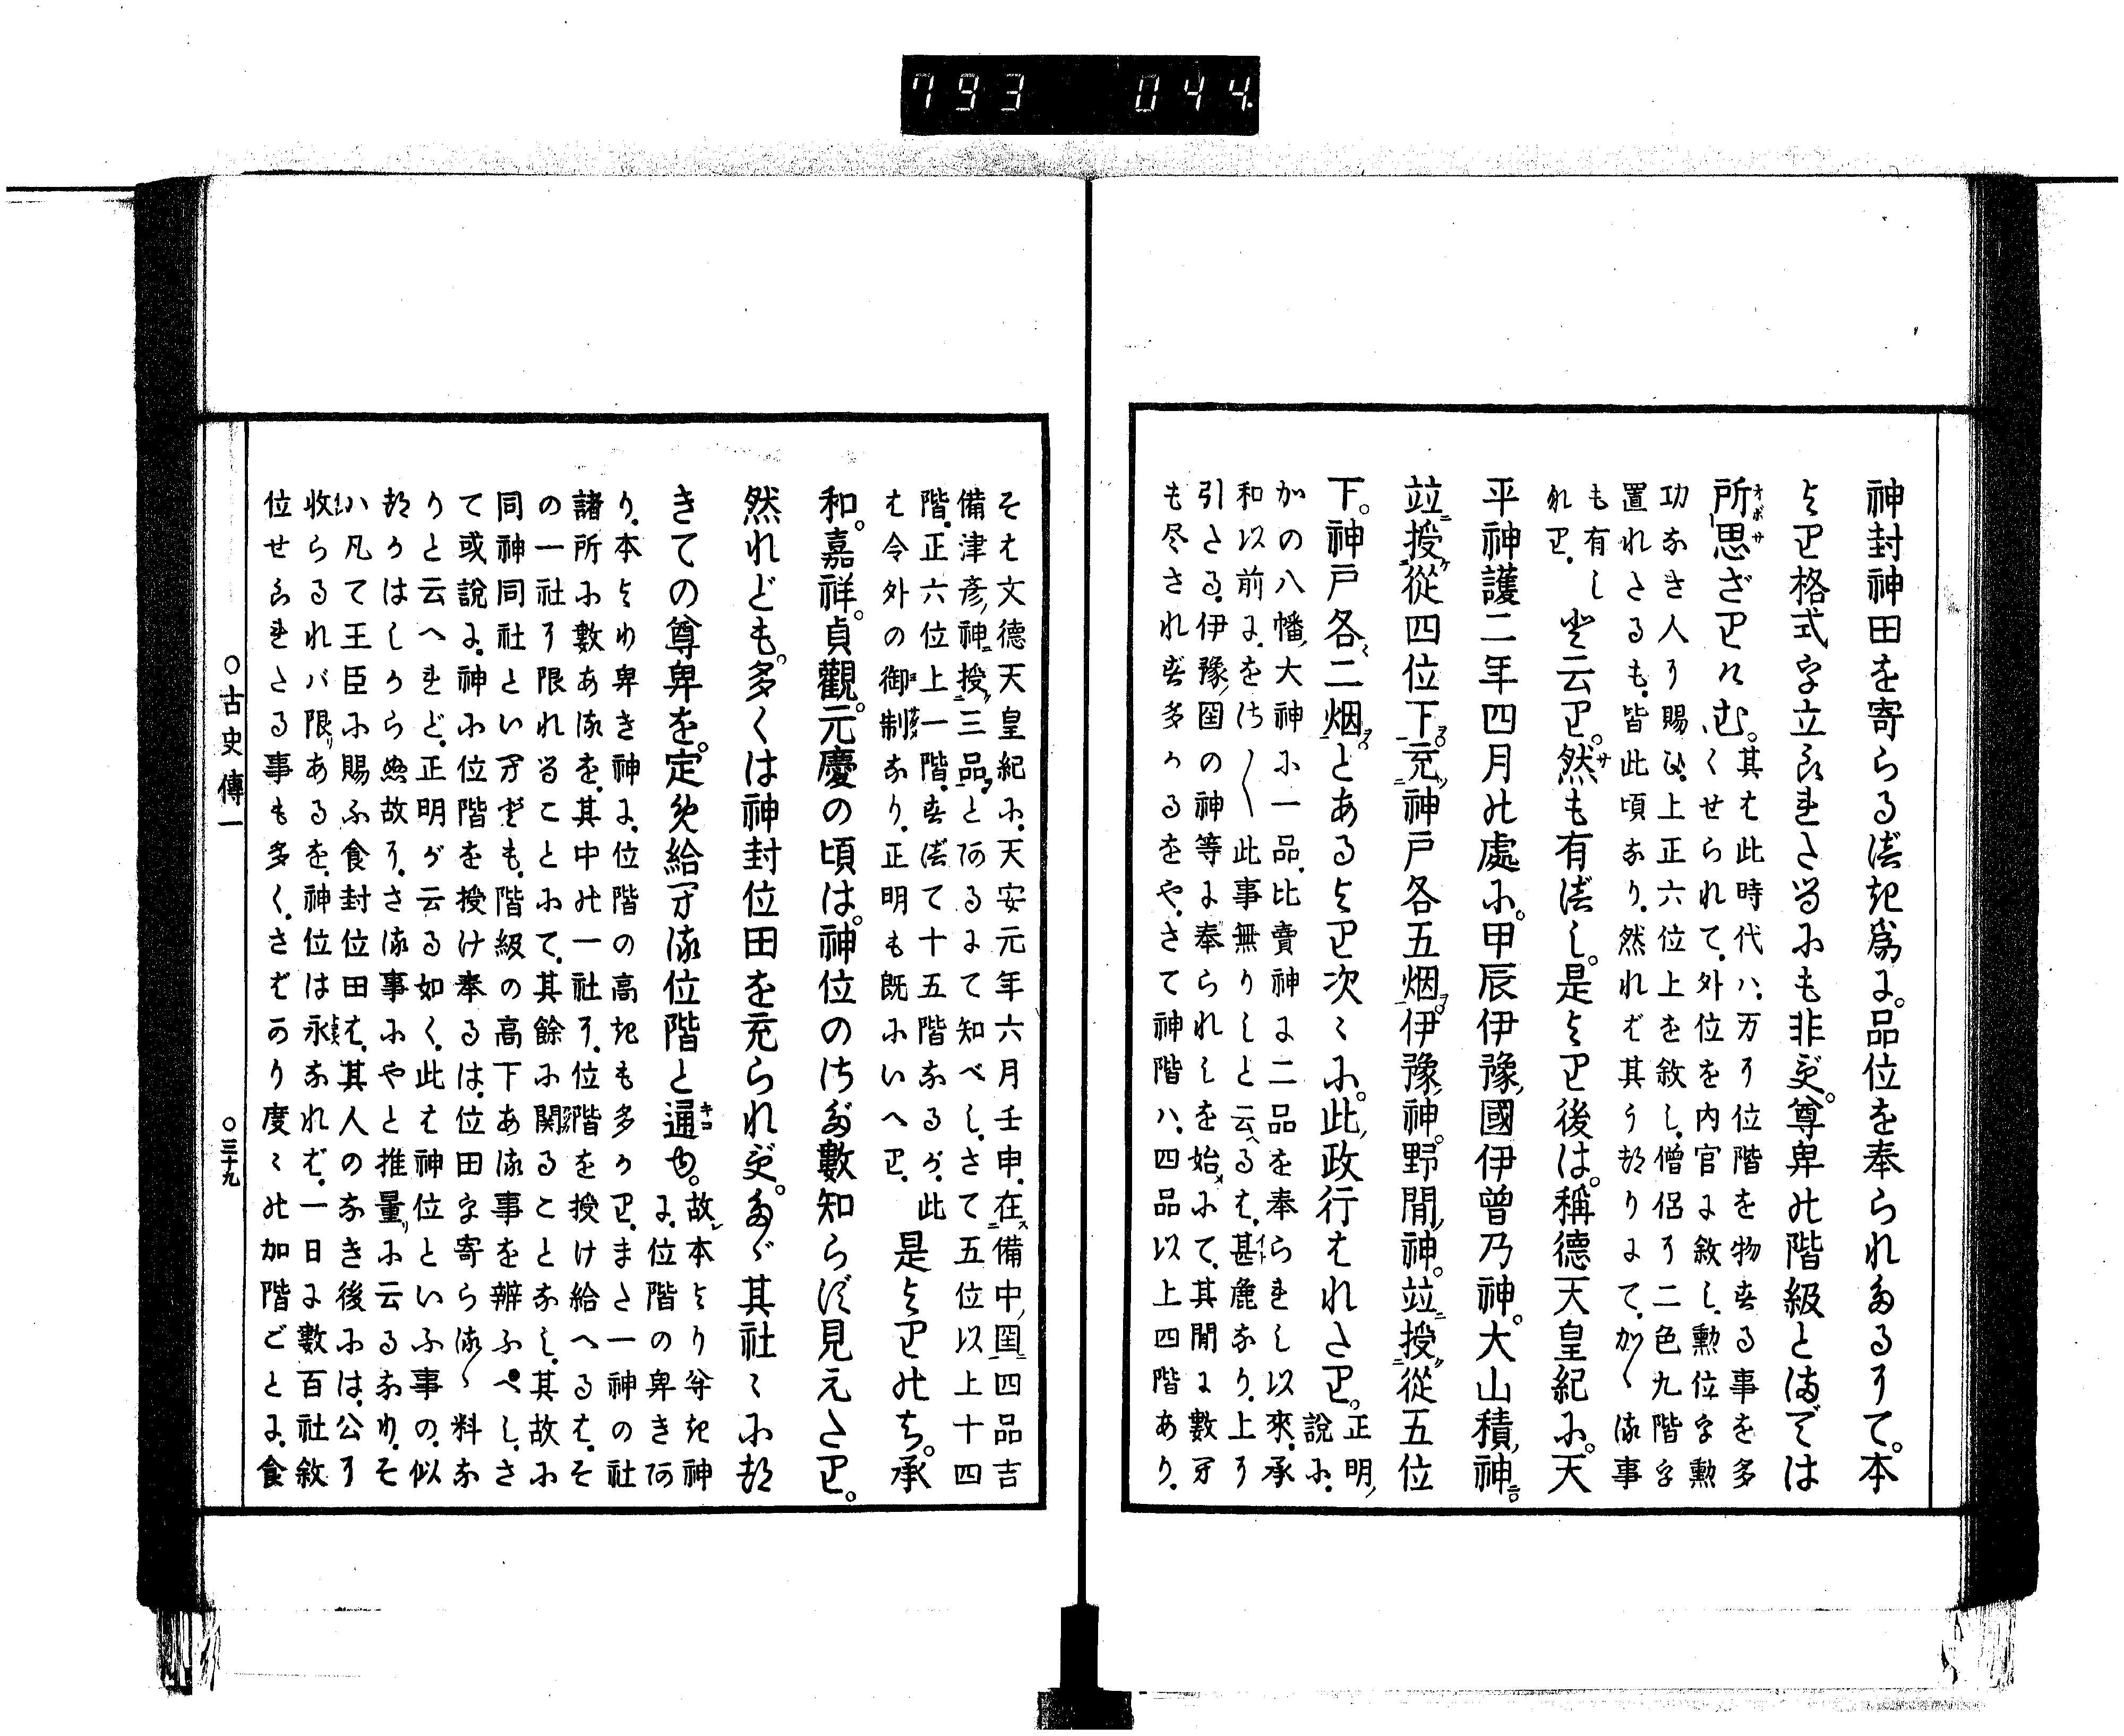 793 044.
神封神田を寄らるべき爲に。品位を奉られたるにて。本
より格式字立られたるにも非ず。尊卑の階級とまでは
所思ざりけむ。其は此時代ハ、万に位階を物する事を多
くせられて、外位を内官に敘し、勲位字勲
功なき人に賜ひ、上正六位上を敘し、僧侶に二色九階字
置れたるも、皆此頃なり、然れば其にならりにて、かゝる事
も有し
なり、と云り。然も有べし。是より後は。稱德天皇紀に。天
平神護二年四月の處に。甲辰伊豫國伊曾乃神。大山積神
竝授從四位下。充神戸各五烟。伊豫神。野間神。竝授從五位
下。神戸各二烟。とあるより次々に。此政行はれたり。正明説に、
かの八幡大神に一品、比賣神に二品を奉られし以來、承
和以前に、をさ〳〵此事無りしと云へるは、甚麁なり、上に
引たる、伊豫国の神等に奉られしを始めにて、其間に數多
も尽されず多かるをや、さて神階ハ、四品以上四階あり、
そは文德天皇紀に、天安元年六月壬申、在備中国四品吉
備津彦神授三品、とあるにて知べし、さて五位以上十四
階、正六位上一階、すべて十五階なるが、此
は令外の御制なり、正明も既にいへり、是よりのち。承
和。嘉祥。貞觀。元慶の頃は。神位のさた數知らず見えたり。
然れども。多くは神封位田を充られず。たゞ其社々に就
きての尊卑を。定め給へる位階と通ゆ。故本より尊き神に、位階の卑きあ
り、本より卑き神に、位階の高きも多かり、また一神の社
諸所に數あるを、其中の一社に、位階を授け給へるは、そ
の一社に限れることにて、其餘に関ることなし、其故に
同神同社といへども、階級の高下ある事を辨ふべし、さ
て或說に、神に位階を授け奉るは、位田字寄らるゝ料な
りと云へれど、正明が云る如く、此は神位といふ事の、似
つかはしからぬ故に、さる事にやと推量に云るなり、そ
ハ凡て王臣に賜ふ食封位田は、其人のなき後には、公に
收らるれバ限あるを、神位は永なれば、一日に數百社敘
位せられたる事も多く、さばかり度々の加階ごとに、食
○古史傳一 ○三十九